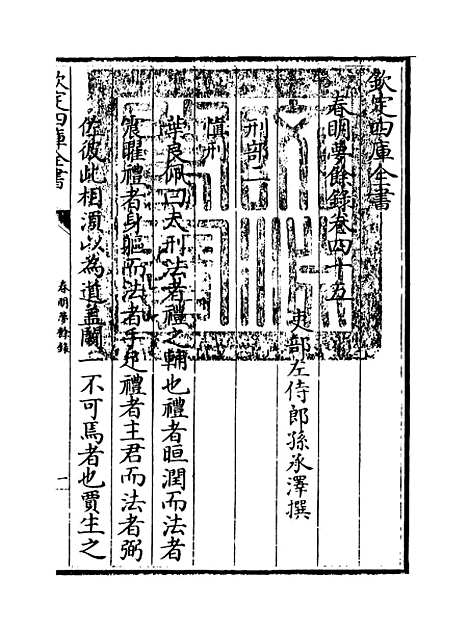 欽定四庫全書
春明夢餘錄卷四十五
吏部左侍郎孫承澤撰
刑部二
慎刑
葉良佩曰夫刑法者禮之輔也禮者晅潤而法者
震曜禮者身軀而法者手足禮者主君而法者弼
佐彼此相須以為道蓋闕一不可焉者也賈生之
欽定四庫全書
春明夢餘錄
一